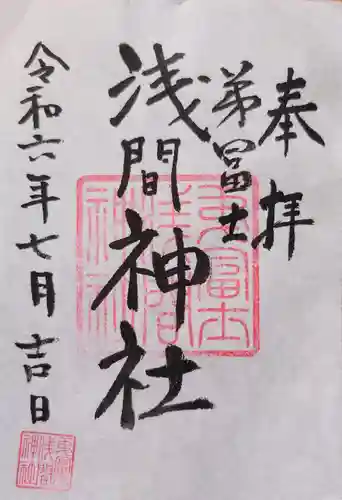 奉拝
弟冨士
浅間神社
令和六年七月吉日